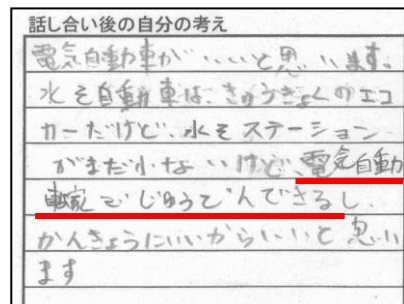 話し合い後の自分の考え
電気自動車がいいと思います。
水そ自動車は、きゅうきょくのエコ
カーだけど、水そステーション
がまだ少ないけど、電気自動
車家でじゅうでんできるし、
かんきょうにいいからいいと思い
ます